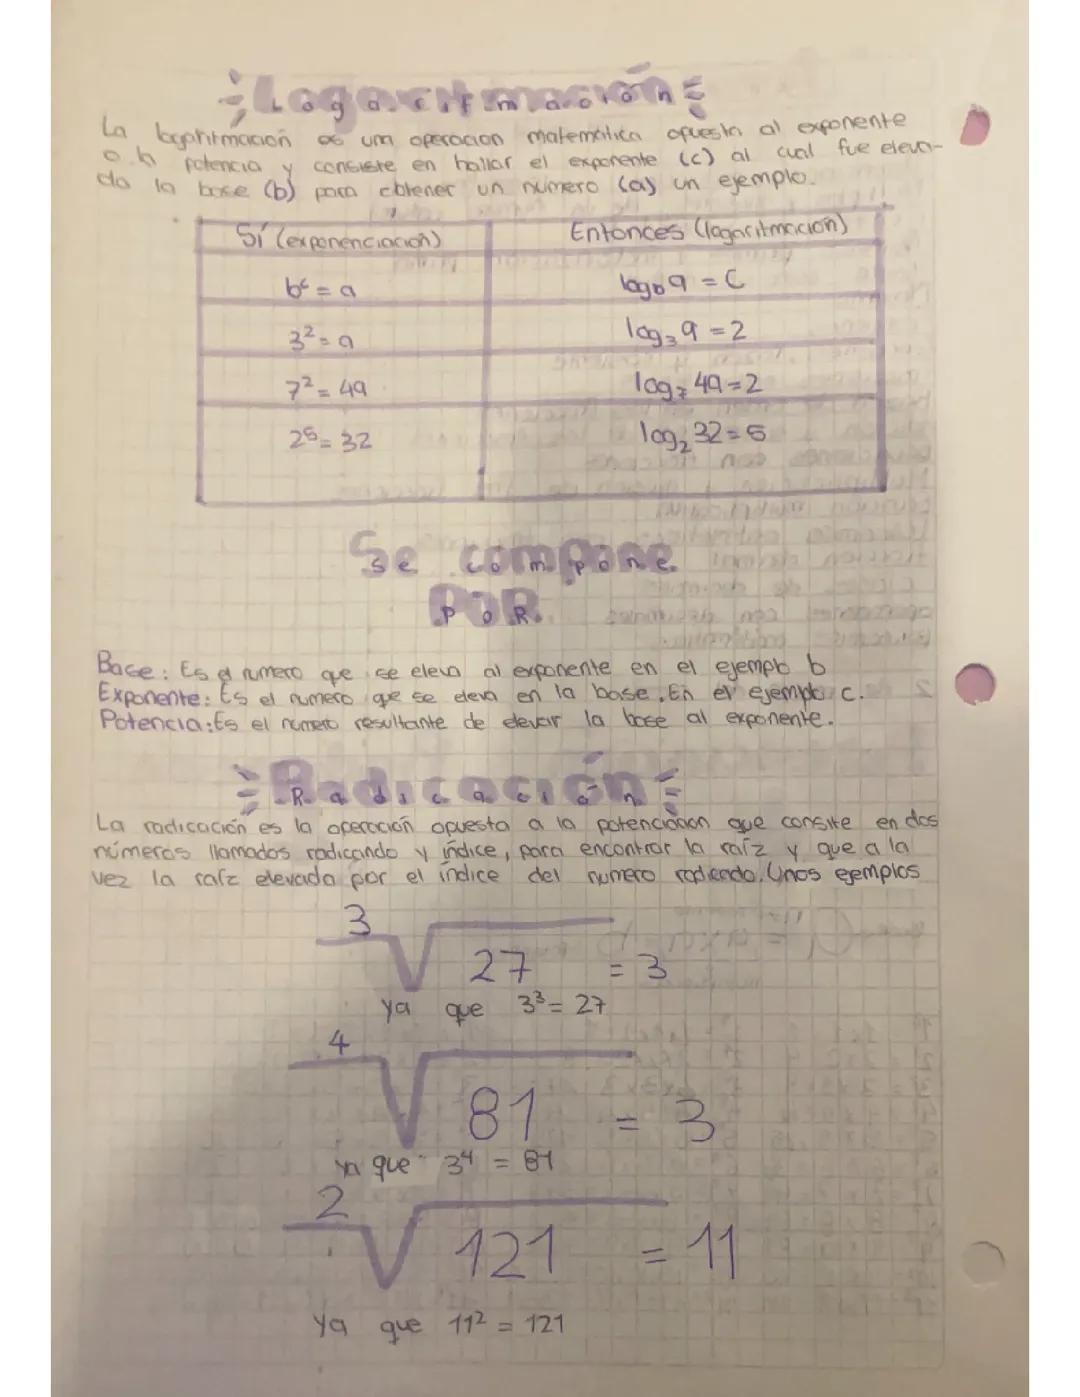 Logaritmación
La logaritmación es una operacion matemática opuesta al exponente
o la potencia y consiste en hallar el exponente (c) al cual fue eleva-
do la base (b) para obtener un número (a) un ejemplo.
Sí (exponenciación) Entonces (logaritmación)
b^c = a log_b a = C
3² = 9 log₃ 9 = 2
7² = 49 log₇ 49 = 2
2⁵ = 32 log₂ 32 = 5
Se compone
POR.
Base: Es el numero que se eleva al exponente en el ejemplo b
Exponente: Es el numero que se eleva en la base. En el ejemplo c.
Potencia: Es el numero resultante de elevar la base al exponente.
Radicación
La radicación es la operación opuesta a la potenciación que consite en dos
números llamados radicando y índice, para encontrar la raíz y que a la
vez la raíz elevada por el índice del numero radicando. Unos ejemplos
3√27 = 3
ya que 3³ = 27
4√81 = 3
ya que 3⁴ = 81
2√121 = 11
ya que 11² = 121